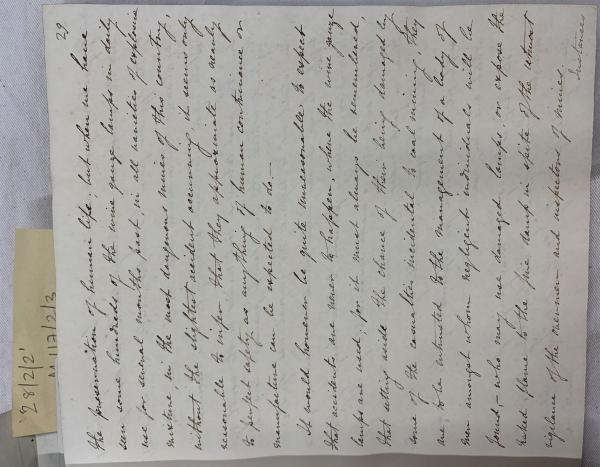 29
the preservation of human life; but when we have
seen some hundreds of the wire gauze lamps in daily
use for several months past, in all varieties of explosive
mixture, in the most dangerous mines of this country,
without the slightest accident occurring, it seems only
reasonable to infer that they approximate as nearly
to perfect safety as anything of human contrivance or
manufacture can be expected to do.—
It would however be quite unreasonable to expect
that accidents are never to happen, where the wire gauze
lamps are used; for it must always be remembered,
that setting aside the chance of their being damaged by
some of the casualties incidental to coal mining, they
are to be intrusted to the management of a body of
men amongst whom negligent individuals will be
found,— who may use damaged lamps, or expose the
naked flame to the fire damp in spite of the utmost
vigilance of the overmen and inspectors of mines.
Instances
28/2/2'